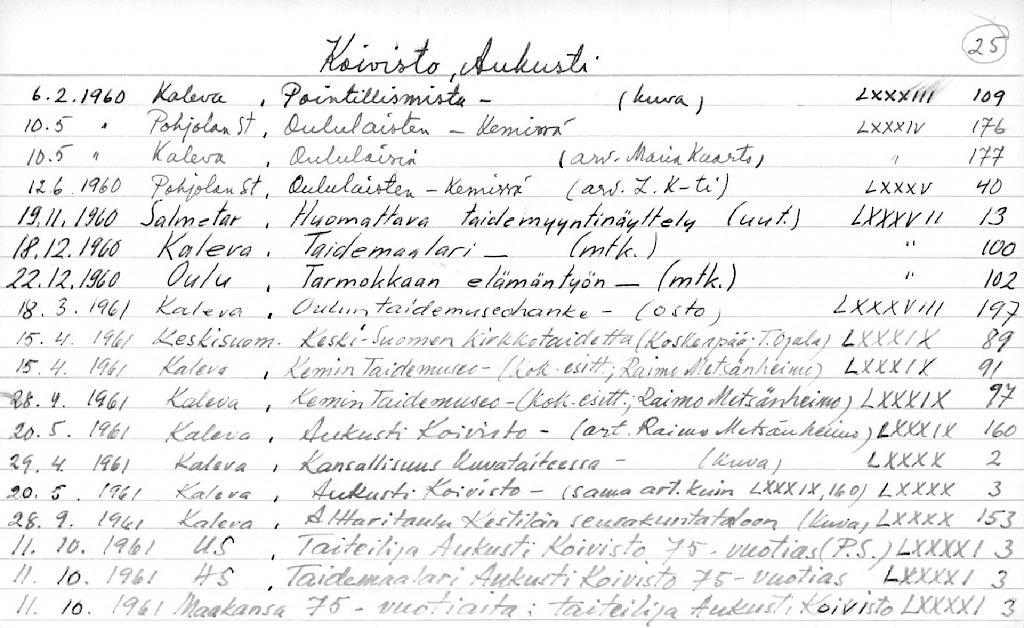 25
Koivisto, Aukusti
6.2.1960 Kaleva, Pointillismista - (kuva) LXXXIII 109
10.5 " Pohjolan St, Oululaisten - Kemissä LXXXIV 176
10.5 " Kaleva, Oululaisia (arv. Maria Kaarto) " 177
12.6 1960 Pohjolan St, Oululaisten - Kemissä (arv. L. K-ti) LXXXV 40
19.11.1960 Salmetar, Huomattava taidemyyntinäyttely (uut.) LXXXVII 13
18.12.1960 Kaleva, Taidemaalari - (mtk.) " 100
22.12.1960 Oulu, Tarmokkaan elämäntyön - (mtk.) " 102
18.3.1961 Kaleva, Oulun taidemuseohanke - (osto) LXXXVIII 197
15.4.1961 Keskisuom. Keski-Suomen kirkkotaidetta (Koskenpää; T. Ojala) LXXXIX 89
15.4.1961 Kaleva, Kemin Taidemuseo - (kok. esitt.; Raimo Metsänheimo) LXXXIX 91
28.4.1961 Kaleva, Kemin Taidemuseo - (kok. esitt.; Raimo Metsänheimo) LXXXIX 97
20.5.1961 Kaleva, Aukusti Koivisto - (art. Raimo Metsänheimo) LXXXIX 160
29.4.1961 Kaleva, Kansallisuus kuvataiteessa - (kuva) LXXXX 2
20.5.1961 Kaleva, Aukusti Koivisto - (sama art. kuin LXXXIX, 160) LXXXX 3
28.9.1961 Kaleva, Alttaritaulu Kestilän seurakuntataloon (kuva) LXXXX 153
11.10.1961 US, Taiteilija Aukusti Koivisto 75-vuotias (P.S.) LXXXXI 3
11.10.1961 HS, Taidemaalari Aukusti Koivisto 75-vuotias LXXXXI 3
11.10.1961 Maakansa 75-vuotiaita: taiteilija Aukusti Koivisto LXXXXI 3